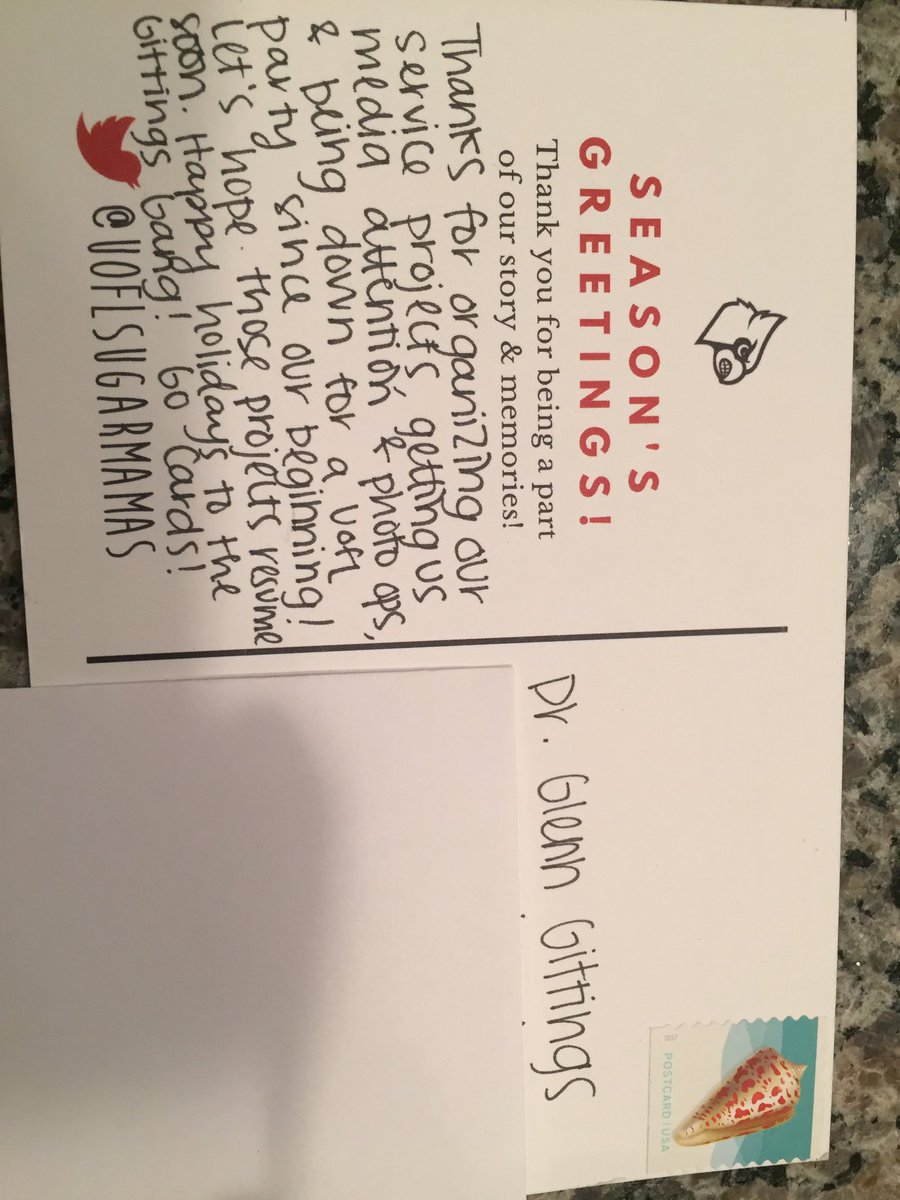 SEASON'S
GREETINGS!
Thank you for being a part
of our story & memories!
Thanks for organizing our
service projects getting us
media attention & photo ops,
& being down for a UofL
party since our beginning!
Let's hope those projects resume
soon. Happy holidays to the
Gittings Gang! Go Cards!
@UOFLSUGARMAMAS
Dr. Glenn Gittings
2017
POSTCARD | USA